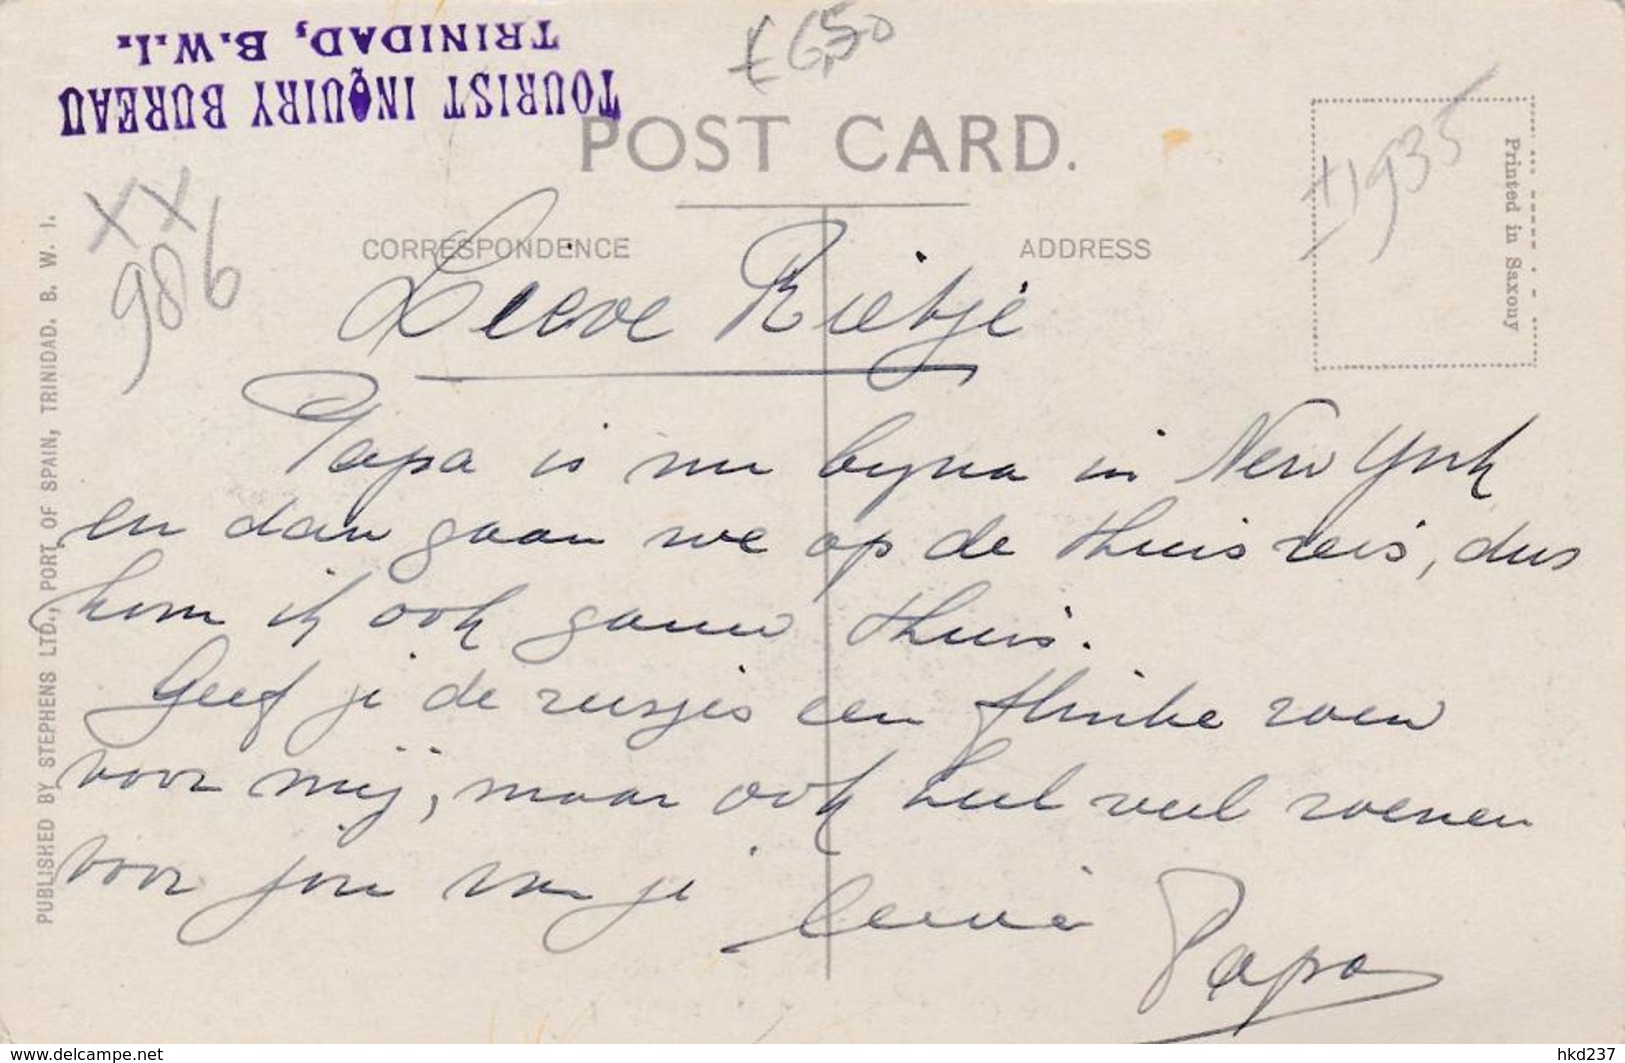 TOURIST INQUIRY BUREAU
TRINIDAD, B.W.I.
£6,50
POST CARD.
± 1935
Printed in Saxony
XX
986
CORRESPONDENCE
ADDRESS
PUBLISHED BY STEPHENS LTD., PORT OF SPAIN, TRINIDAD. B. W. I.
Lieve Rietje
Papa is nu byna in New York
en dan gaan we op de thuis reis, dus
kom ik ook gauw thuis.
Geef je de zusjes een flinke zoen
voor mij, maar ook heel veel zoenen
voor jou van je
Papa
www.delcampe.net
hkd237